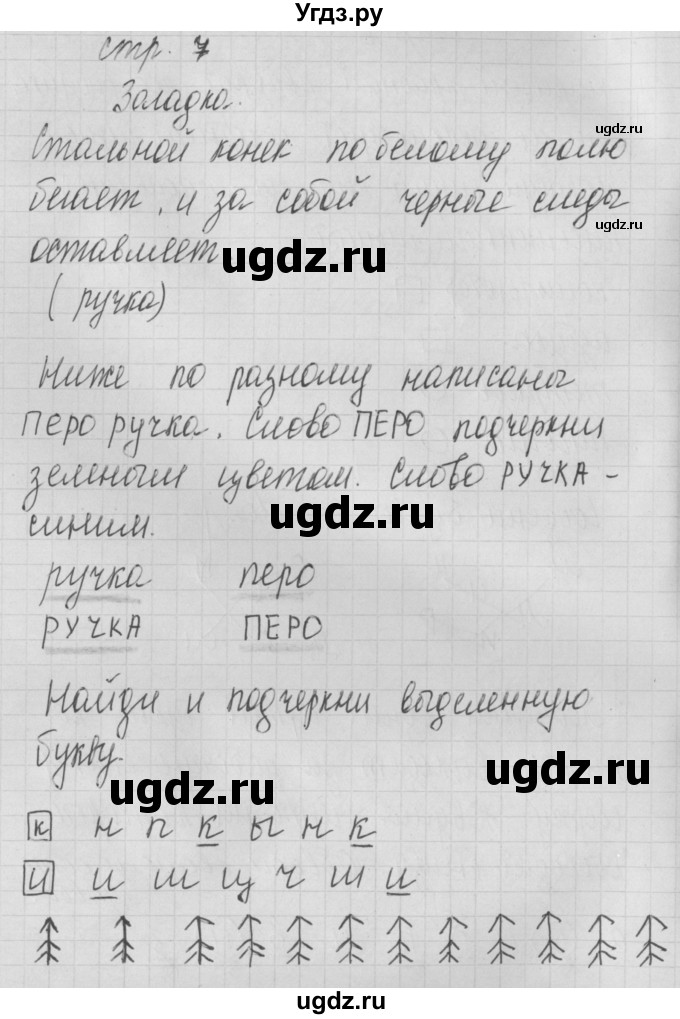 Угдз.ру
стр. 7
Загадка.
Стальной конек по белому полю
бегает, и за собой черные следы
оставляет
(ручка)
Ниже по разному написаны
ПЕРО ручка. Слово ПЕРО подчеркни
зеленым цветом. Слово РУЧКА -
синим.
ручка перо
РУЧКА ПЕРО
Найди и подчеркни выделенную
букву.
к н п к ы н к
и и ш щ ч ш и
ugdz.ru
ugdz.ru
ugdz.ru
ugdz.ru
ugdz.ru
ugdz.ru
ugdz.ru